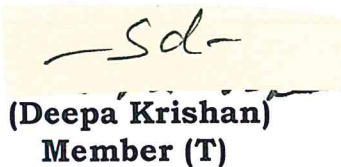 -Sd-
(Deepa Krishan)
Member (T)